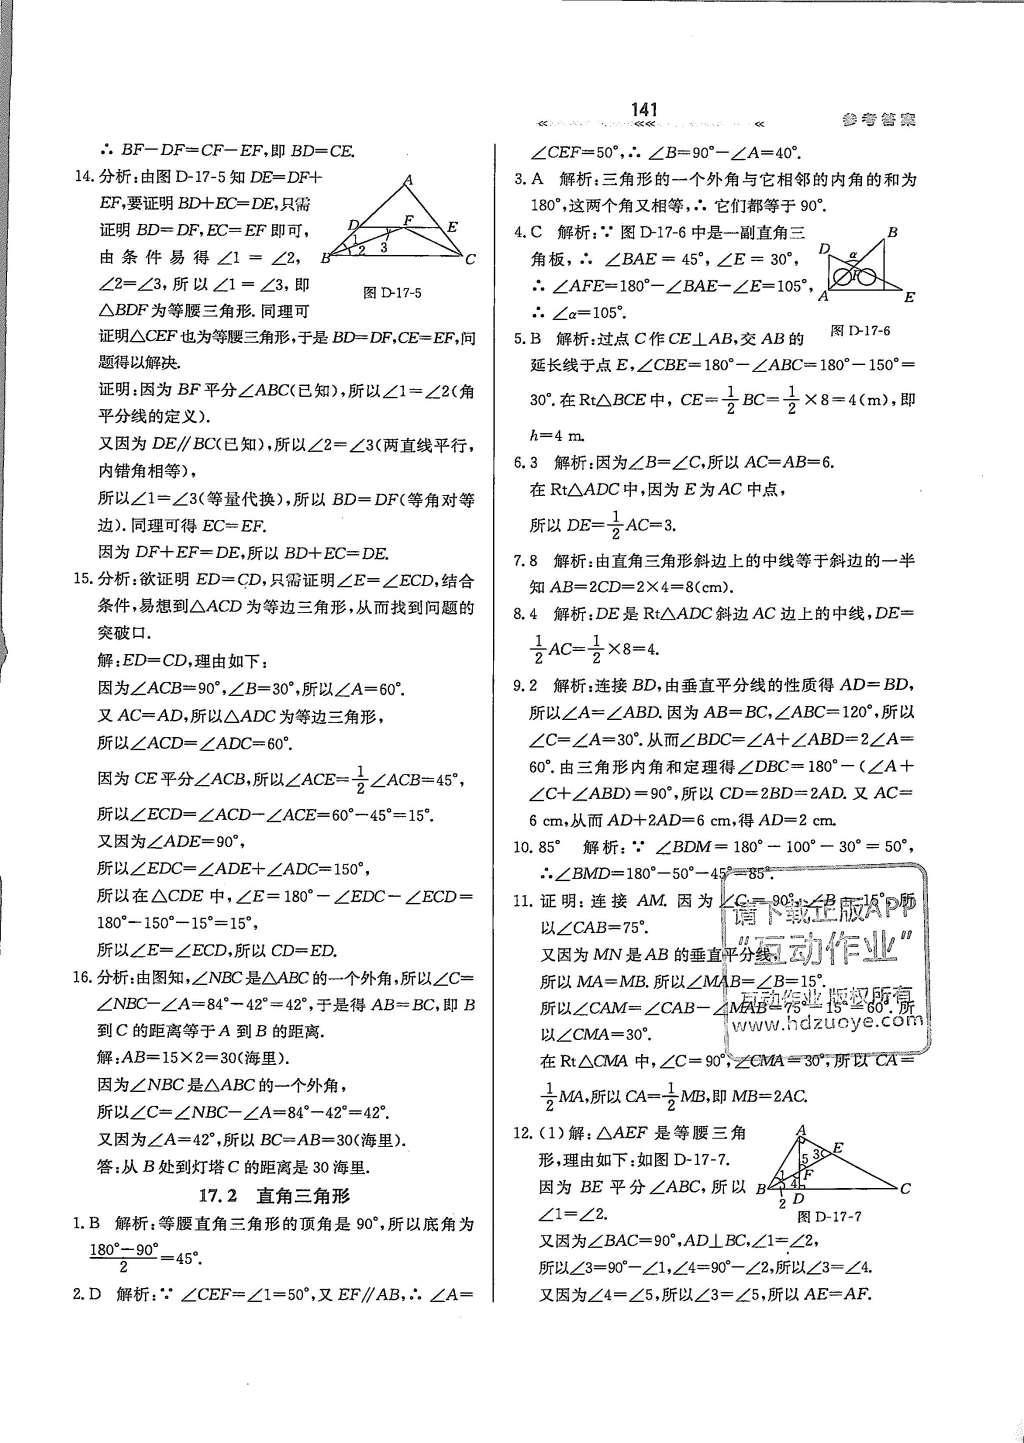 141
参考答案
∴ BF−DF=CF−EF,即 BD=CE.
14.分析:由图 D-17-5 知 DE=DF+
EF,要证明 BD+EC=DE,只需
证明 BD=DF,EC=EF 即可,
由条件易得∠1=∠2,
∠2=∠3,所以∠1=∠3,即
△BDF为等腰三角形.同理可
A
D
F
E
1
2
3
B
C
图 D-17-5
证明△CEF也为等腰三角形,于是 BD=DF,CE=EF,问
题得以解决.
证明:因为 BF 平分∠ABC(已知),所以∠1=∠2(角
平分线的定义).
又因为 DE∥BC(已知),所以∠2=∠3(两直线平行,
内错角相等),
所以∠1=∠3(等量代换),所以 BD=DF(等角对等
边).同理可得 EC=EF.
因为 DF+EF=DE,所以 BD+EC=DE.
15.分析:欲证明 ED=CD,只需证明∠E=∠ECD,结合
条件,易想到△ACD 为等边三角形,从而找到问题的
突破口.
解:ED=CD,理由如下:
因为∠ACB=90°,∠B=30°,所以∠A=60°.
又 AC=AD,所以△ADC 为等边三角形,
所以∠ACD=∠ADC=60°.
因为 CE 平分∠ACB,所以∠ACE=1/2∠ACB=45°,
所以∠ECD=∠ACD−∠ACE=60°−45°=15°.
又因为∠ADE=90°,
所以∠EDC=∠ADE+∠ADC=150°,
所以在△CDE 中,∠E=180°−∠EDC−∠ECD=
180°−150°−15°=15°,
所以∠E=∠ECD,所以 CD=ED.
16.分析:由图知,∠NBC是△ABC的一个外角,所以∠C=
∠NBC−∠A=84°−42°=42°,于是得 AB=BC,即 B
到 C 的距离等于 A 到 B 的距离.
解:AB=15×2=30(海里).
因为∠NBC是△ABC的一个外角,
所以∠C=∠NBC−∠A=84°−42°=42°.
又因为∠A=42°,所以 BC=AB=30(海里).
答:从 B 处到灯塔 C 的距离是 30 海里.
17.2 直角三角形
1.B 解析:等腰直角三角形的顶角是 90°,所以底角为
(180°−90°)/2=45°.
2.D 解析:∵ ∠CEF=∠1=50°,又 EF∥AB,∴ ∠A=
∠CEF=50°,∴ ∠B=90°−∠A=40°.
3.A 解析:三角形的一个外角与它相邻的内角的和为
180°,这两个角又相等,∴ 它们都等于 90°.
4.C 解析:∵ 图 D-17-6 中是一副直角三
角板,∴ ∠BAE=45°,∠E=30°,
∴ ∠AFE=180°−∠BAE−∠E=105°,
∴ ∠α=105°.
B
D
α
F
A
E
图 D-17-6
5.B 解析:过点 C 作 CE⊥AB,交 AB 的
延长线于点 E,∠CBE=180°−∠ABC=180°−150°=
30°.在 Rt△BCE 中,CE=1/2BC=1/2×8=4(m),即
h=4 m.
6.3 解析:因为∠B=∠C,所以 AC=AB=6.
在 Rt△ADC 中,因为 E 为 AC 中点,
所以 DE=1/2AC=3.
7.8 解析:由直角三角形斜边上的中线等于斜边的一半
知 AB=2CD=2×4=8(cm).
8.4 解析:DE 是 Rt△ADC 斜边 AC 边上的中线,DE=
1/2AC=1/2×8=4.
9.2 解析:连接 BD,由垂直平分线的性质得 AD=BD,
所以∠A=∠ABD.因为 AB=BC,∠ABC=120°,所以
∠C=∠A=30°.从而∠BDC=∠A+∠ABD=2∠A=
60°.由三角形内角和定理得∠DBC=180°−(∠A+
∠C+∠ABD)=90°,所以 CD=2BD=2AD.又 AC=
6 cm,从而 AD+2AD=6 cm,得 AD=2 cm.
10.85° 解析:∵ ∠BDM=180°−100°−30°=50°,
∴∠BMD=180°−50°−45°=85°.
11.证明:连接 AM.因为∠C=90°,∠B=15°,所
以∠CAB=75°.
又因为 MN 是 AB 的垂直平分线,
所以 MA=MB.所以∠MAB=∠B=15°.
所以∠CAM=∠CAB−∠MAB=75°−15°=60°.所
以∠CMA=30°.
在 Rt△CMA 中,∠C=90°,∠CMA=30°,所以 CA=
1/2MA,所以 CA=1/2MB,即 MB=2AC.
请下载正版APP
“互动作业”
互动作业 版权所有
www.hdzuoye.com
12.(1)解:△AEF 是等腰三角
形,理由如下:如图 D-17-7.
因为 BE 平分∠ABC,所以
∠1=∠2.
A
5
3
E
1
F
4
B
2
D
C
图 D-17-7
又因为∠BAC=90°,AD⊥BC,∠1=∠2,
所以∠3=90°−∠1,∠4=90°−∠2,所以∠3=∠4.
又因为∠4=∠5,所以∠3=∠5,所以 AE=AF.